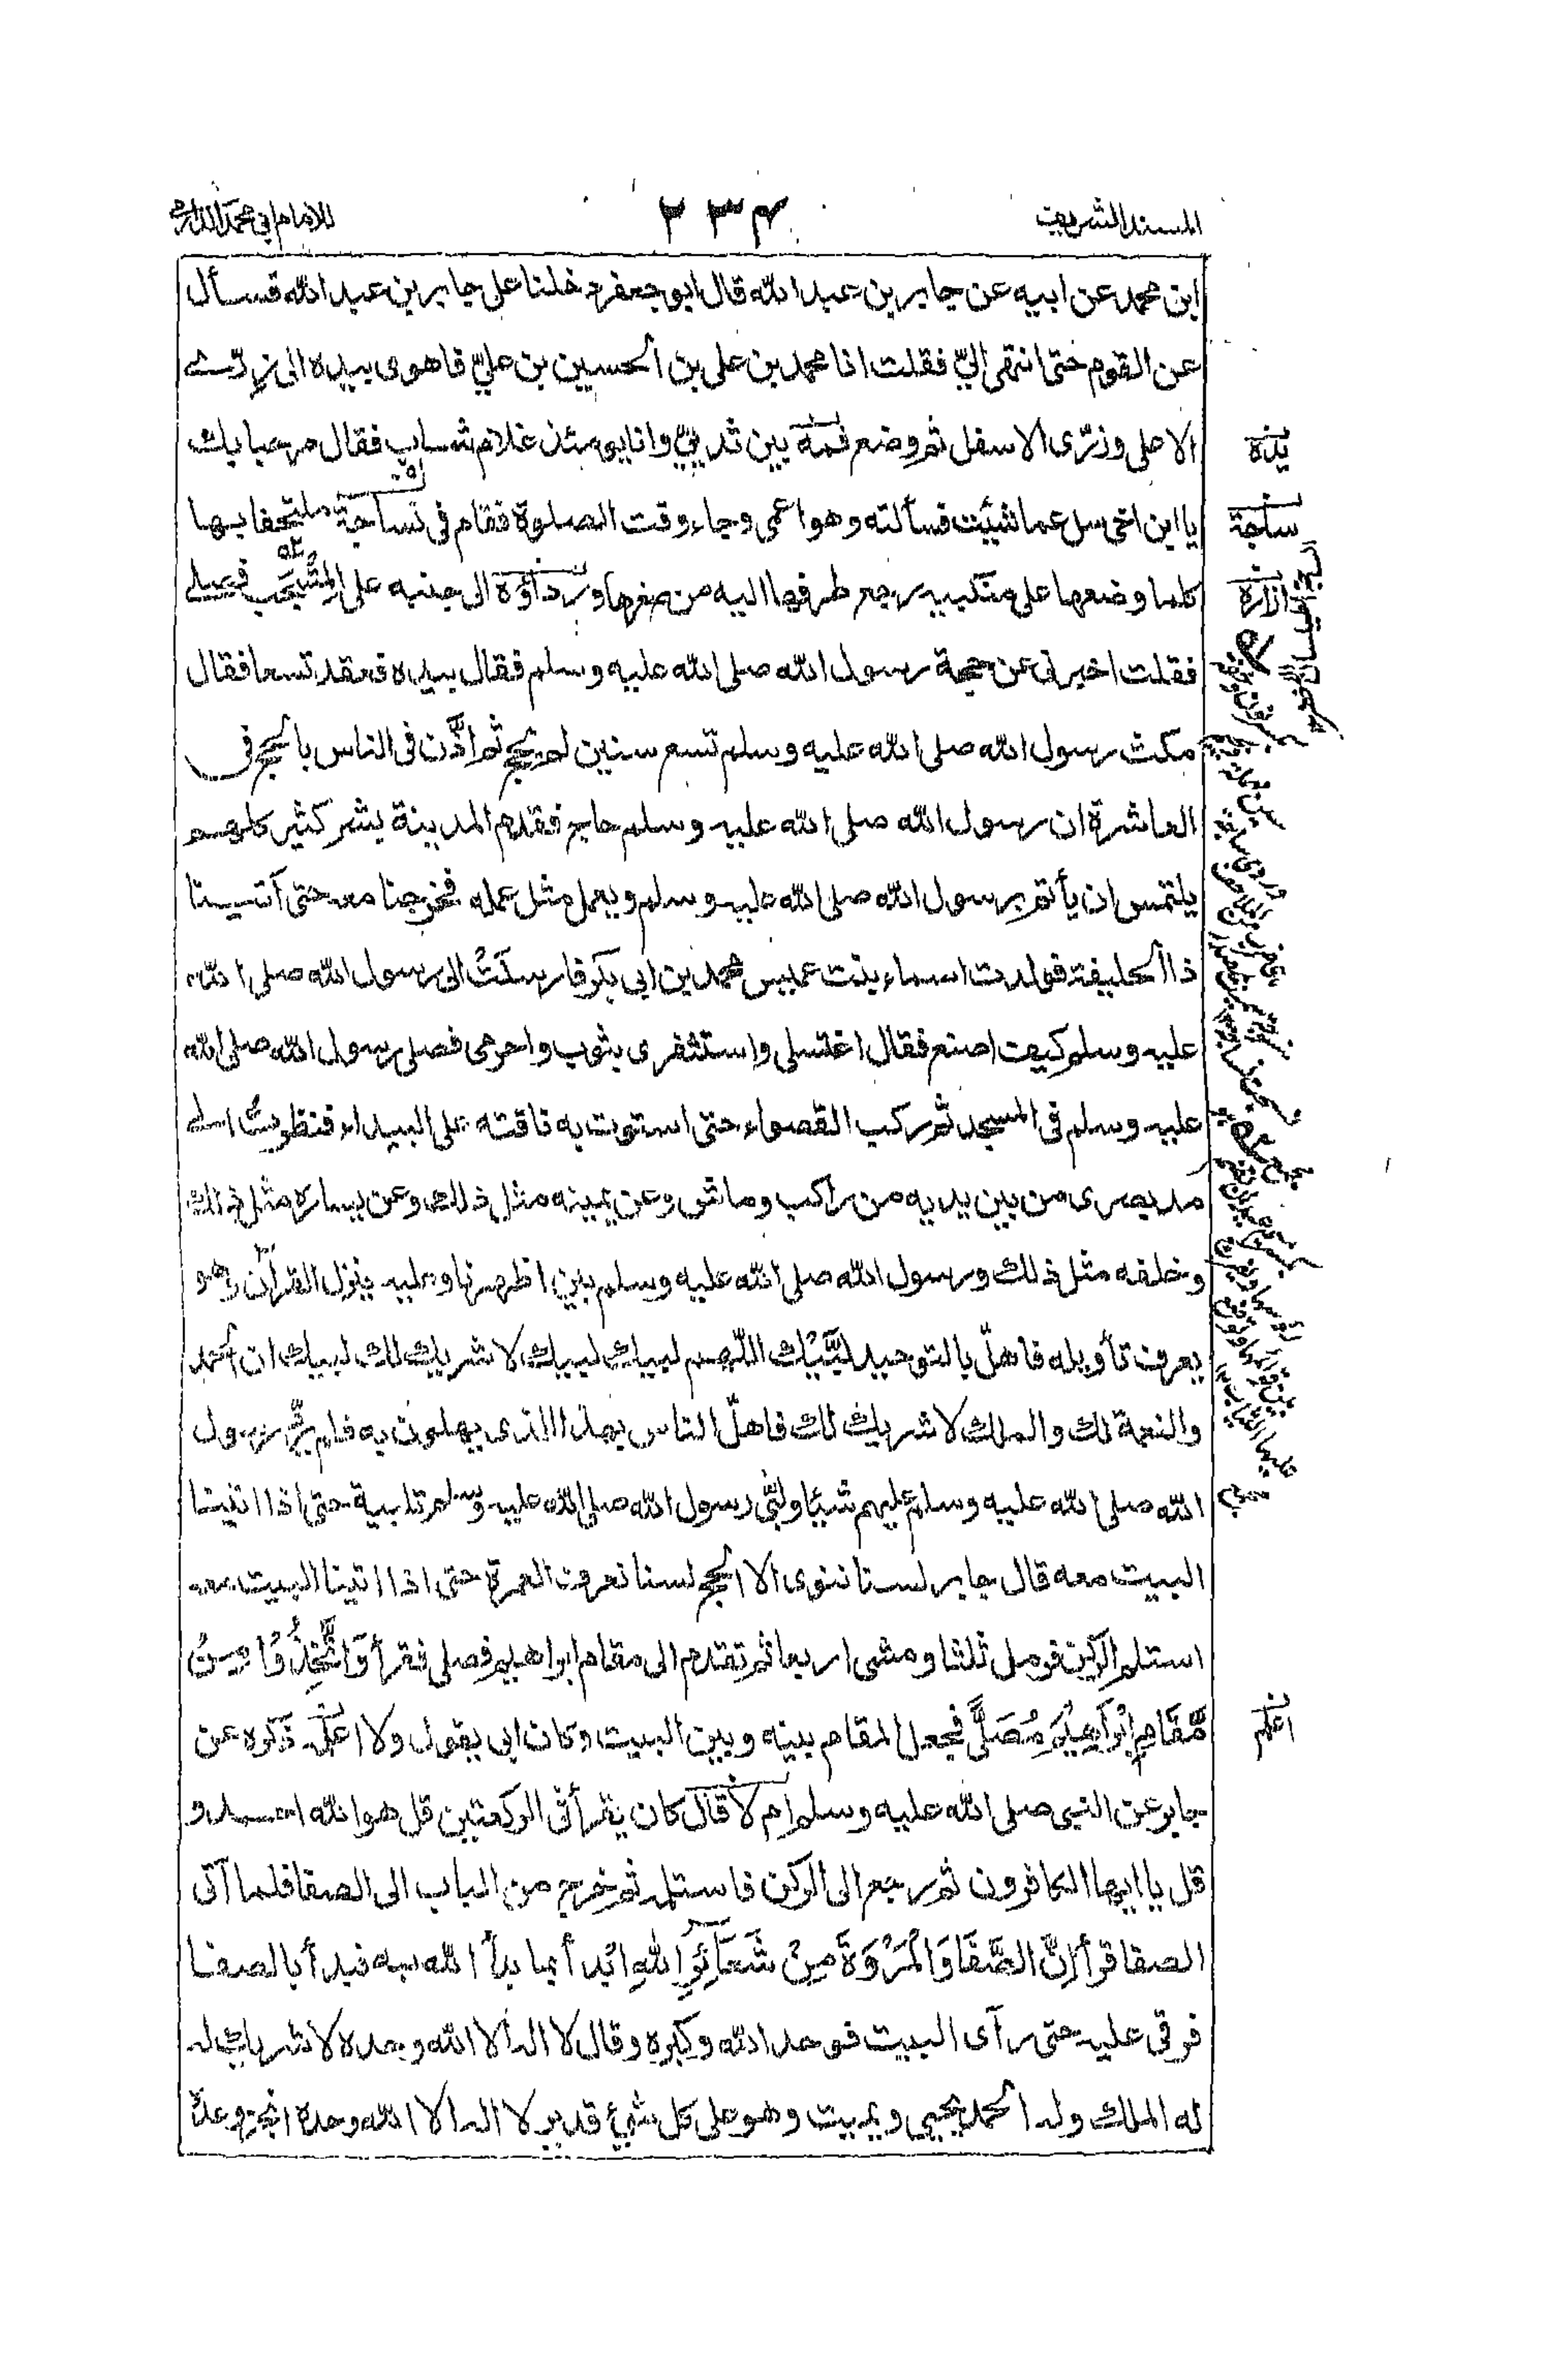 المسند الشريف
٢٣٤
للامام ابى محمد الدارمى
ابن محمد عن ابيه عن جابر بن عبد الله قال ابو جعفر دخلنا على جابر بن عبد الله فسأل
عن القوم حتى انتهى اليّ فقلت انا محمد بن على بن الحسين بن عليّ فاهوى بيده الى زرّى
الاعلى وزرّى الاسفل ثم وضع فمه بين ثدييّ وانا يومئذ غلام شاب فقال مرحبا بك
يا ابن اخى سل عما شئت فسألته وهو اعمى وجاء وقت الصلوة فقام فى نساجة ملتحفا بها
كلما وضعها على منكبيه رجع طرفها اليه من صغرها ورداؤه الى جنبه على المشجب فصلى
فقلت اخبرنى عن حجة رسول الله صلى الله عليه وسلم فقال بيده فعقد تسعا فقال
مكث رسول الله صلى الله عليه وسلم تسع سنين لم يحج ثم اذّن فى الناس بالحج فى
العاشرة ان رسول الله صلى الله عليه وسلم حاج فقدم المدينة بشر كثير كلهم
يلتمس ان يأتم برسول الله صلى الله عليه وسلم ويعمل مثل عمله فخرجنا معه حتى أتينا
ذا الحليفة فولدت اسماء بنت عميس محمد بن ابى بكر فارسلتْ الى رسول الله صلى الله
عليه وسلم كيف اصنع فقال اغتسلى واستثفرى بثوب واحرمى فصلى رسول الله صلى الله
عليه وسلم فى المسجد ثم ركب القصواء حتى استوت به ناقته على البيداء فنظرت الى
مد بصرى من بين يديه من راكب وماش وعن يمينه مثل ذلك وعن يساره مثل ذلك
وخلفه مثل ذلك ورسول الله صلى الله عليه وسلم بين اظهرنا وعليه ينزل القرآن وهو
يعرف تأويله فاهلّ بالتوحيد لبّيك اللّهم لبيك لبيك لا شريك لك لبيك ان الحمد
والنعمة لك والملك لا شريك لك فاهلّ الناس بهذا الذى يهلون به فلم يردّ رسول
الله صلى الله عليه وسلم عليهم شيئا ولبّى رسول الله صلى الله عليه وسلم تلبية حتى اذا اتينا
البيت معه قال جابر لسنا ننوى الا الحج لسنا نعرف العمرة حتى اذا اتينا البيت معه
استلم الركن فرمل ثلثا ومشى اربعا ثم تقدم الى مقام ابراهيم فصلى فقرأ وَاتَّخِذُوْا مِنْ
مَّقَامِ اِبْرَاهِيْمَ مُصَلًّى فجعل المقام بينه وبين البيت وكان ابى يقول ولا اعلمه ذكره عن
جابر عن النبى صلى الله عليه وسلم ام لا قال كان يقرأ فى الركعتين قل هو الله احد و
قل يا ايها الكافرون ثم رجع الى الركن فاستلمه ثم خرج من الباب الى الصفا فلما آتى
الصفا قرأ اِنَّ الصَّفَا وَالْمَرْوَةَ مِنْ شَعَآئِرِ اللهِ ابْدأ بما بدأ الله به فبدأ بالصفا
فرقى عليه حتى رأى البيت فوحد الله وكبره وقال لا اله الا الله وحده لا شريك له
له الملك وله الحمد يحيى ويميت وهو على كل شئ قدير لا اله الا الله وحده انجز وعده
يده
ساجة
ازاره
اعلم